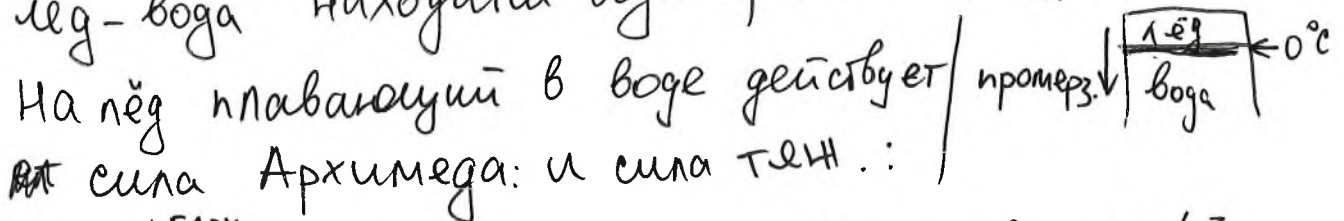 лёд-вода
На лёд плавающий в воде действует
сила Архимеда: и сила тяж.:
промерз.
лёд
0°C
вода